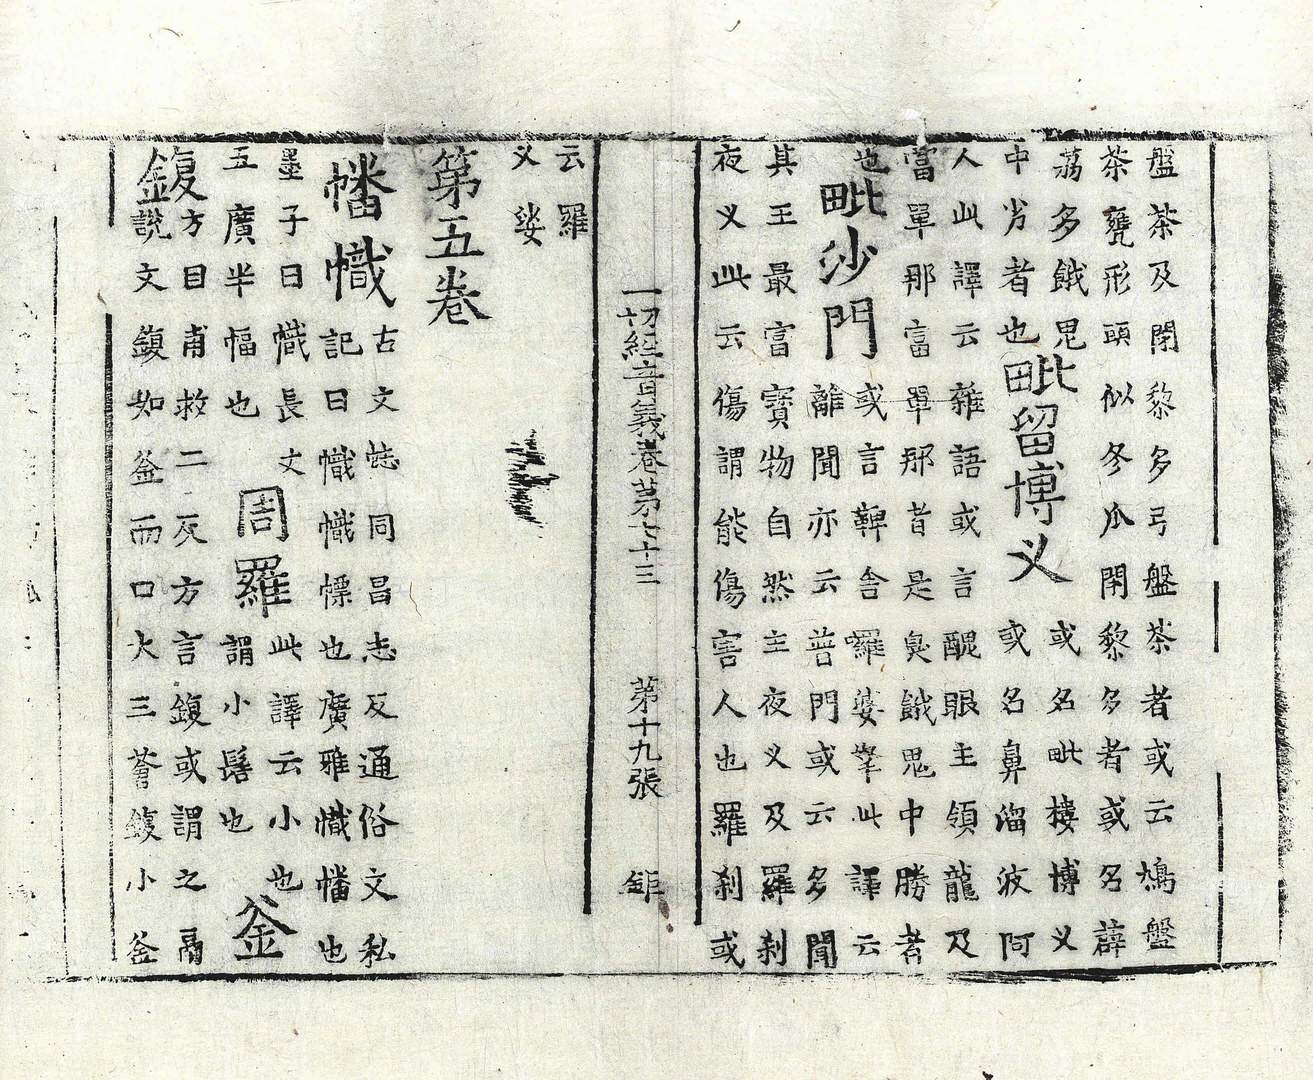 盤茶及閉黎多弓盤茶者或云鳩盤
茶甕形頭似冬瓜閉黎多者或名薜
荔多餓鬼毗留博义或名毗樓博义
中劣者也或名鼻溜波阿
人此譯云雜語或言醜眼主領龍及
富單那富單那者是臭餓鬼中勝者
也毗沙門或言鞞舍羅婆拏此譯云
離聞亦云普門或云多聞
其王最富寶物自然主夜义及羅刹
夜义此云傷謂能傷害人也羅刹或
云羅
义娑
一切經音義卷苐七十三 苐十九張 鉅
第五卷
幡幟古文㤅同昌志反通俗文私
記曰幟幟幖也廣雅幟幡也
墨子曰幟長丈周羅此譯云小也
五廣半幅也謂小髻也釜
鍑方目甫救二反方言鍑或謂之鬲
說文鍑如釜而口大三蒼鍑小釜